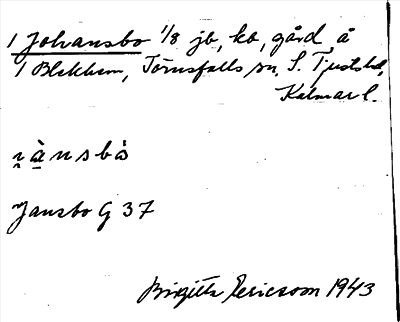 1 Johansbo 1/8 jb, kb, gård, å
1 Blekhem, Törnsfalls sn, S. Tjusts hd,
Kalmar l.
i̯à̱nsbò
Jansbo G 37
Birgitta Ericsson 1943